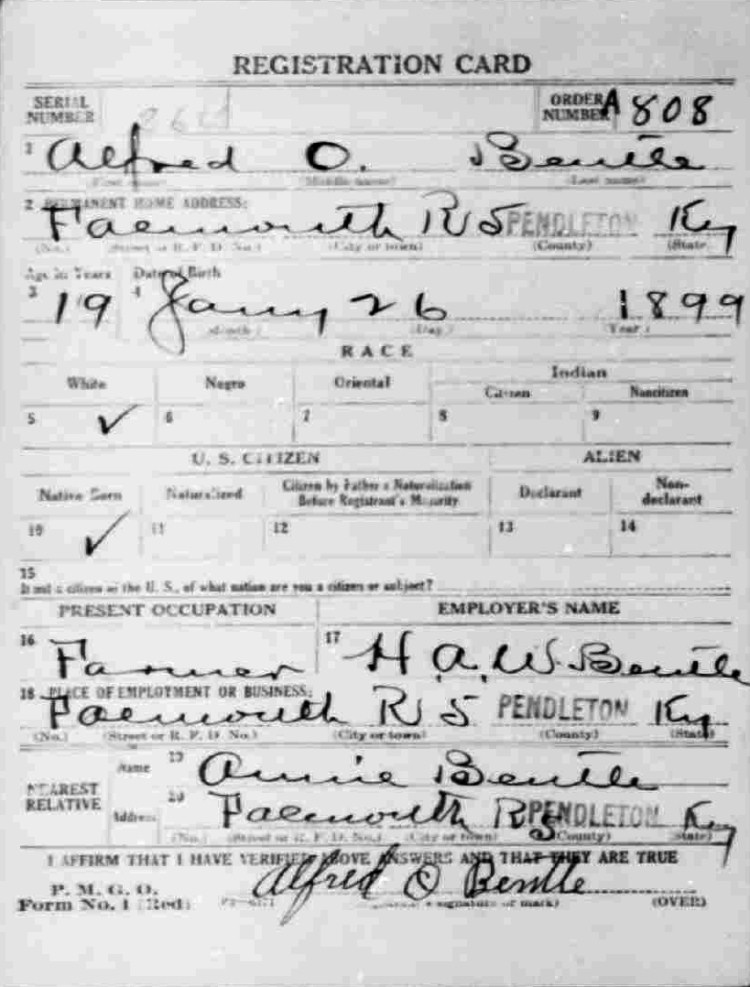 REGISTRATION CARD
SERIAL NUMBER ORDER NUMBER A 808
1 Alfred O. Bentle
(First name) (Middle name) (Last name)
2 PERMANENT HOME ADDRESS:
Falmouth R 5 PENDLETON Ky
(No.) (Street or R. F. D. No.) (City or town) (County) (State)
Age in Years Date of Birth
3 19 4 Jany 26 1899
(Month) (Day) (Year)
RACE
White Negro Oriental Indian
Citizen Noncitizen
5 ✓ 6 7 8 9
U. S. CITIZEN ALIEN
Native Born Naturalized Citizen by Father's Naturalization Before Registrant's Majority Declarant Non-declarant
10 ✓ 11 12 13 14
15
If not a citizen of the U. S., of what nation are you a citizen or subject?
PRESENT OCCUPATION EMPLOYER'S NAME
16 Farmer 17 H. A. W. Bentle
18 PLACE OF EMPLOYMENT OR BUSINESS:
Falmouth R 5 PENDLETON Ky
(No.) (Street or R. F. D. No.) (City or town) (County) (State)
NEAREST RELATIVE
Name 19 Annie Bentle
Address 20 Falmouth R 5 PENDLETON Ky
(No.) (Street or R. F. D. No.) (City or town) (County) (State)
I AFFIRM THAT I HAVE VERIFIED ABOVE ANSWERS AND THAT THEY ARE TRUE
P. M. G. O.
Form No. 1 (Red) Alfred O Bentle
signature or mark) (OVER)